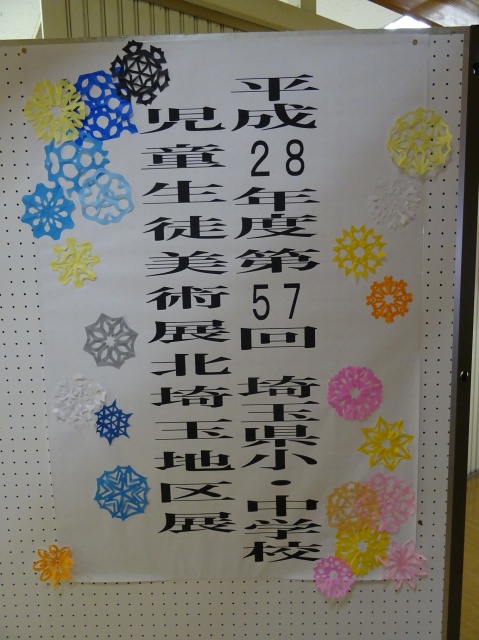 平成28年度第57回 埼玉県小・中学校
児童生徒美術展北埼玉地区展